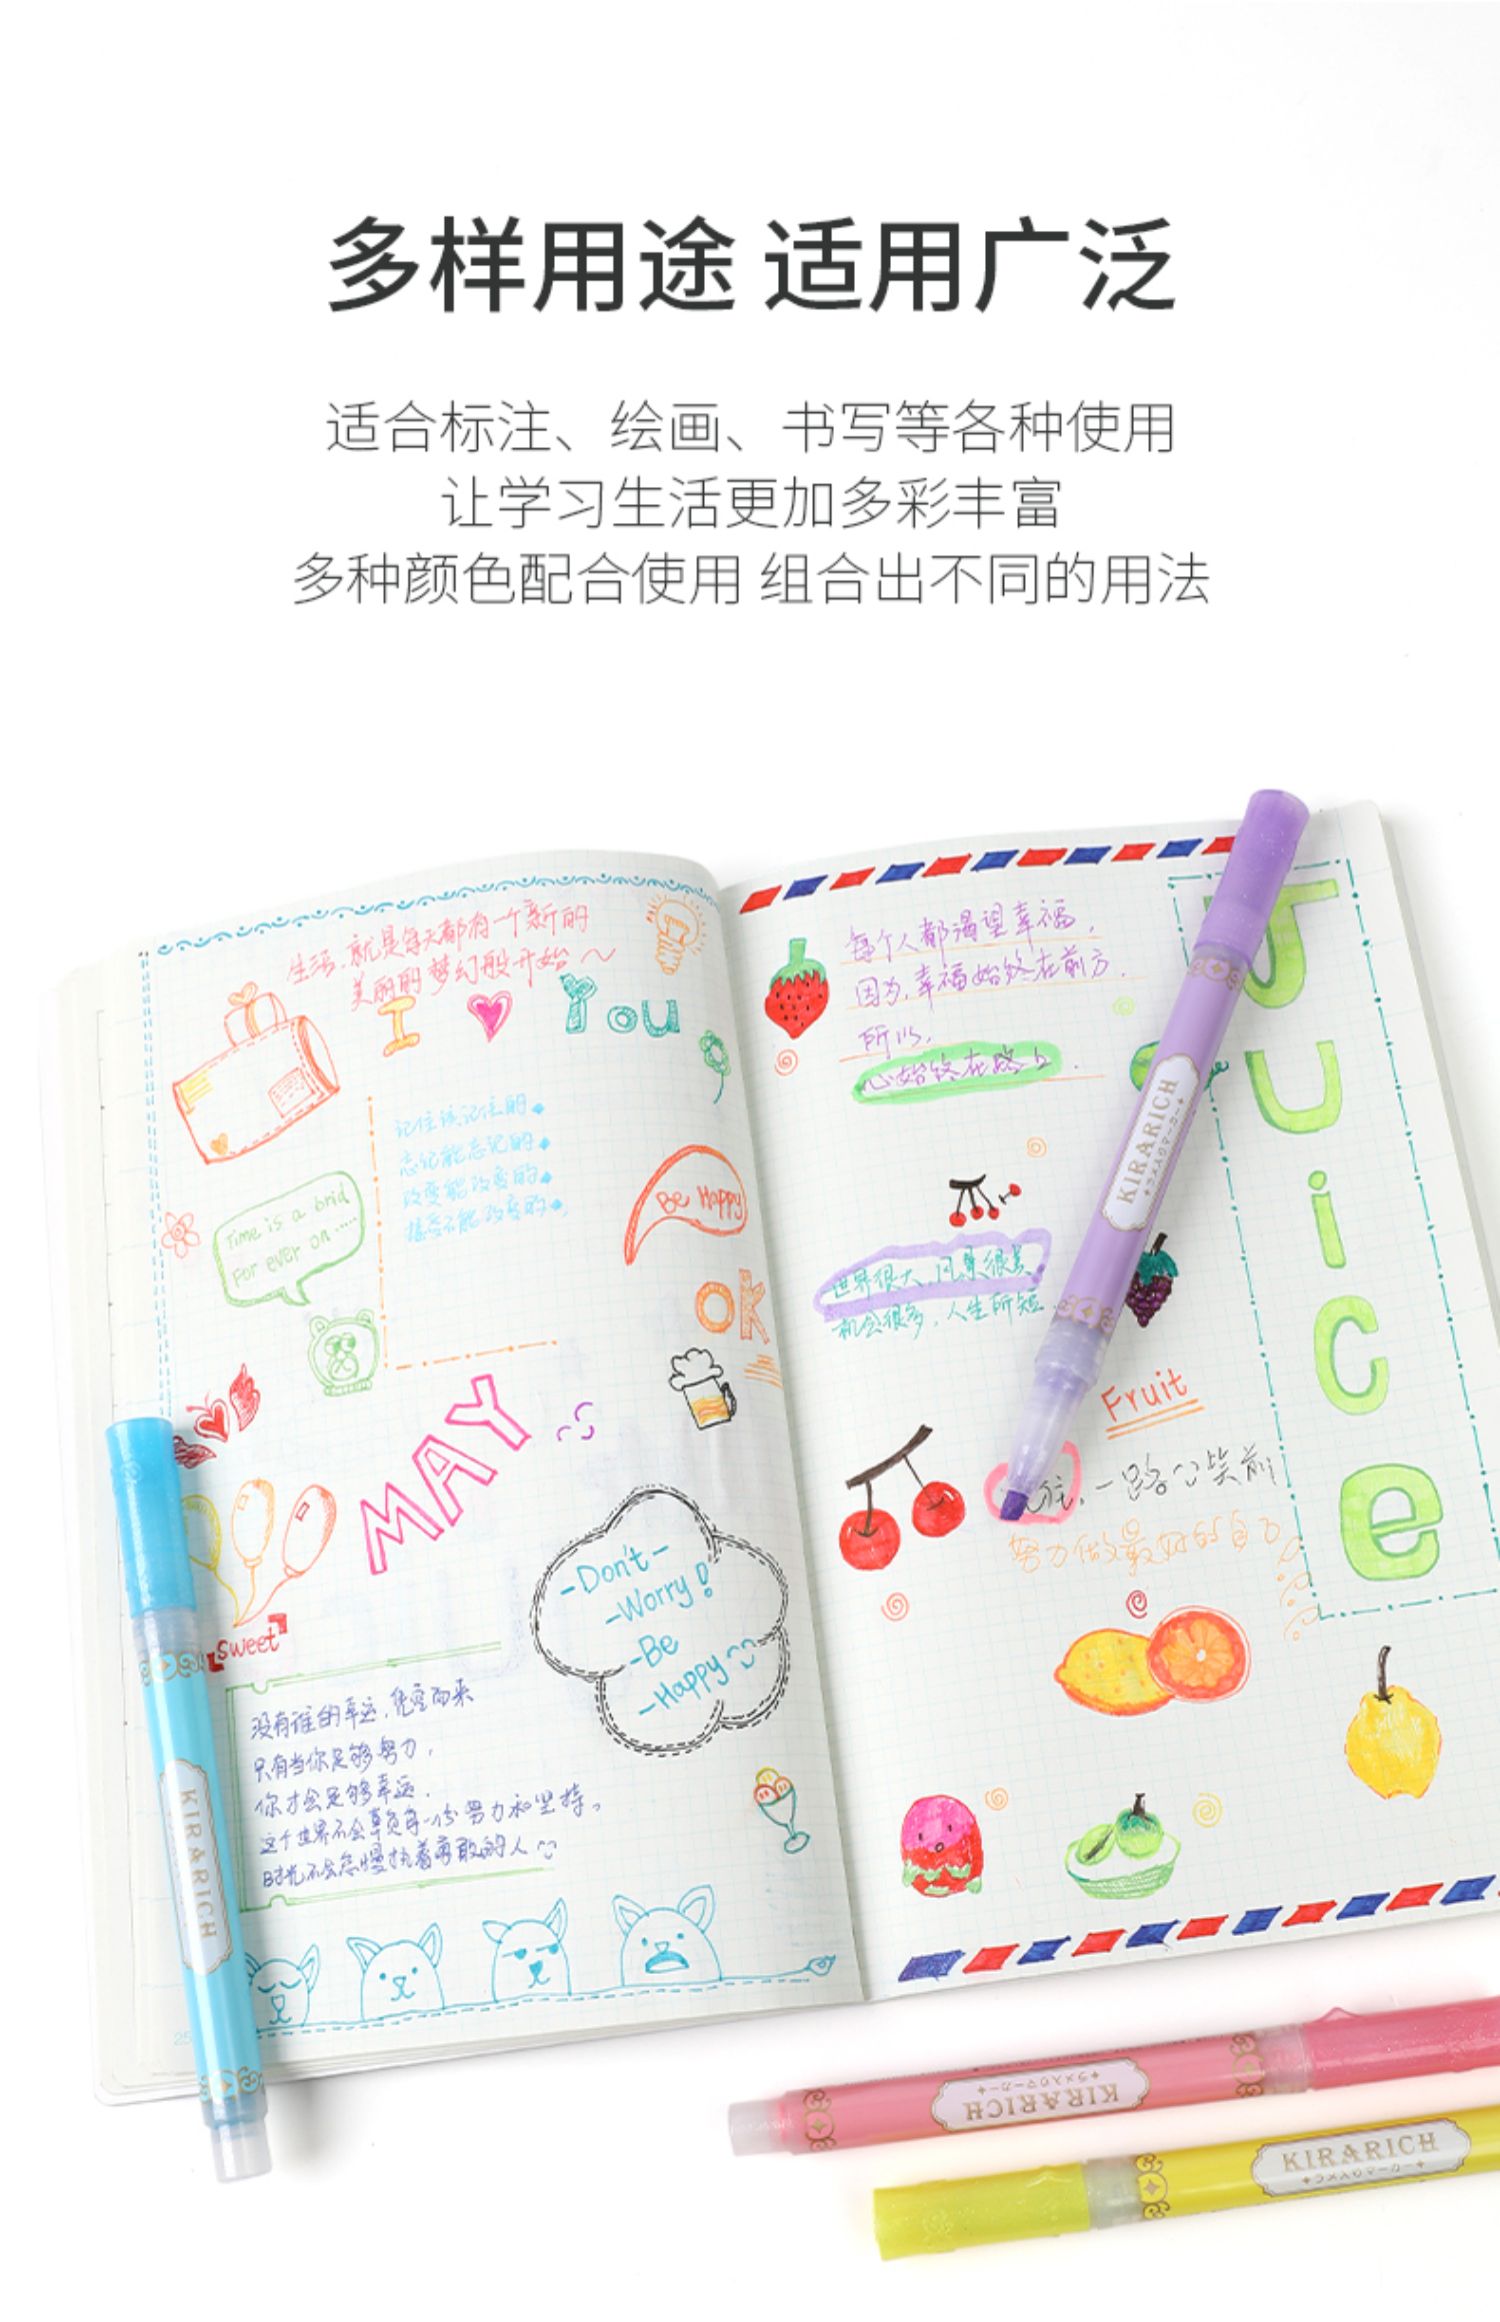 多样用途 适用广泛
适合标注、绘画、书写等各种使用
让学习生活更加多彩丰富
多种颜色配合使用 组合出不同的用法
生活,就是每天都有一个新的
美丽的梦幻般开始~
I You
记住该记住的
忘记能忘记的
改变能改变的
接受不能改变的
Time is a brid
For ever on.....
Be Happy
OK
MAY
-Don't-
-Worry!
-Be
-Happy
sweet
没有谁的幸运,凭空而来
只有当你足够努力,
你才会足够幸运.
这个世界不会辜负每一份努力和坚持。
时光不会怠慢执着勇敢的人
25
每个人都渴望幸福,
因为,幸福始终在前方.
所以,
心始终在路上.
世界很大,风景很美
机会很多,人生所短.
Fruit
往,一路 笑前
努力做最好的自己
Juice
KIRARICH
ラメ入りマーカー
KIRARICH
KIRARICH
ラメ入りマーカー
KIRARICH
ラメ入りマーカー